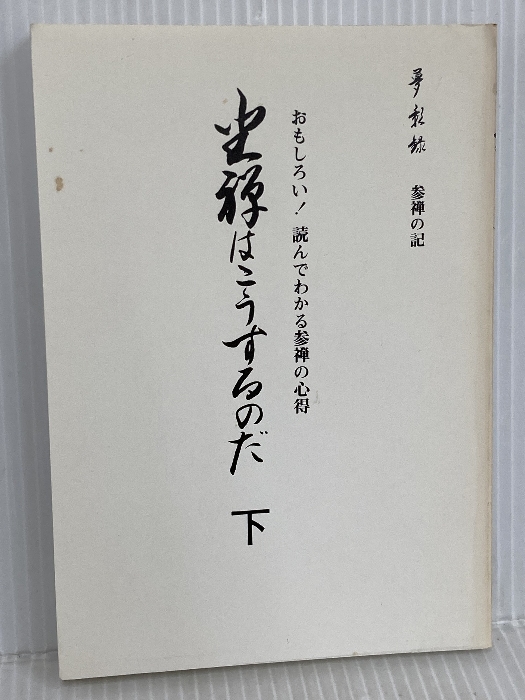 夢彰録 参禅の記
おもしろい！ 読んでわかる参禅の心得
坐禅はこうするのだ 下